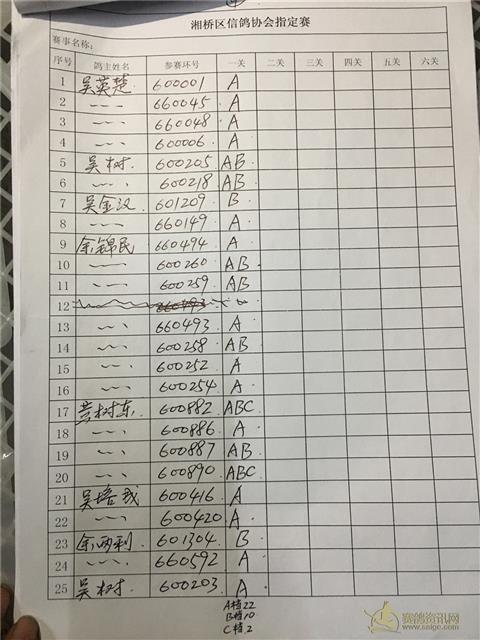 湘桥区信鸽协会指定赛
赛事名称：
序号 鸽主姓名 参赛环号 一关 二关 三关 四关 五关 六关
1 吴英楚 600001 A
2 〃 660045 A
3 〃 660048 A
4 〃 600006 A
5 吴树 600205 AB
6 〃 600218 AB
7 吴金汉 601209 B
8 〃 660149 A
9 余锦民 660494 A
10 〃 600260 AB
11 〃 600259 AB
12 660493
13 〃 660493 A
14 〃 600258 AB
15 〃 600252 A
16 〃 600254 A
17 树东 600882 ABC
18 〃 600886 A
19 〃 600887 AB
20 〃 600890 ABC
21 吴培 600416 A
22 〃 600420 A
23 余两利 601304 B
24 〃 660592 A
25 吴树 600203 A
A档22
B档10
C档2
赛鸽资讯网
www.saige.com